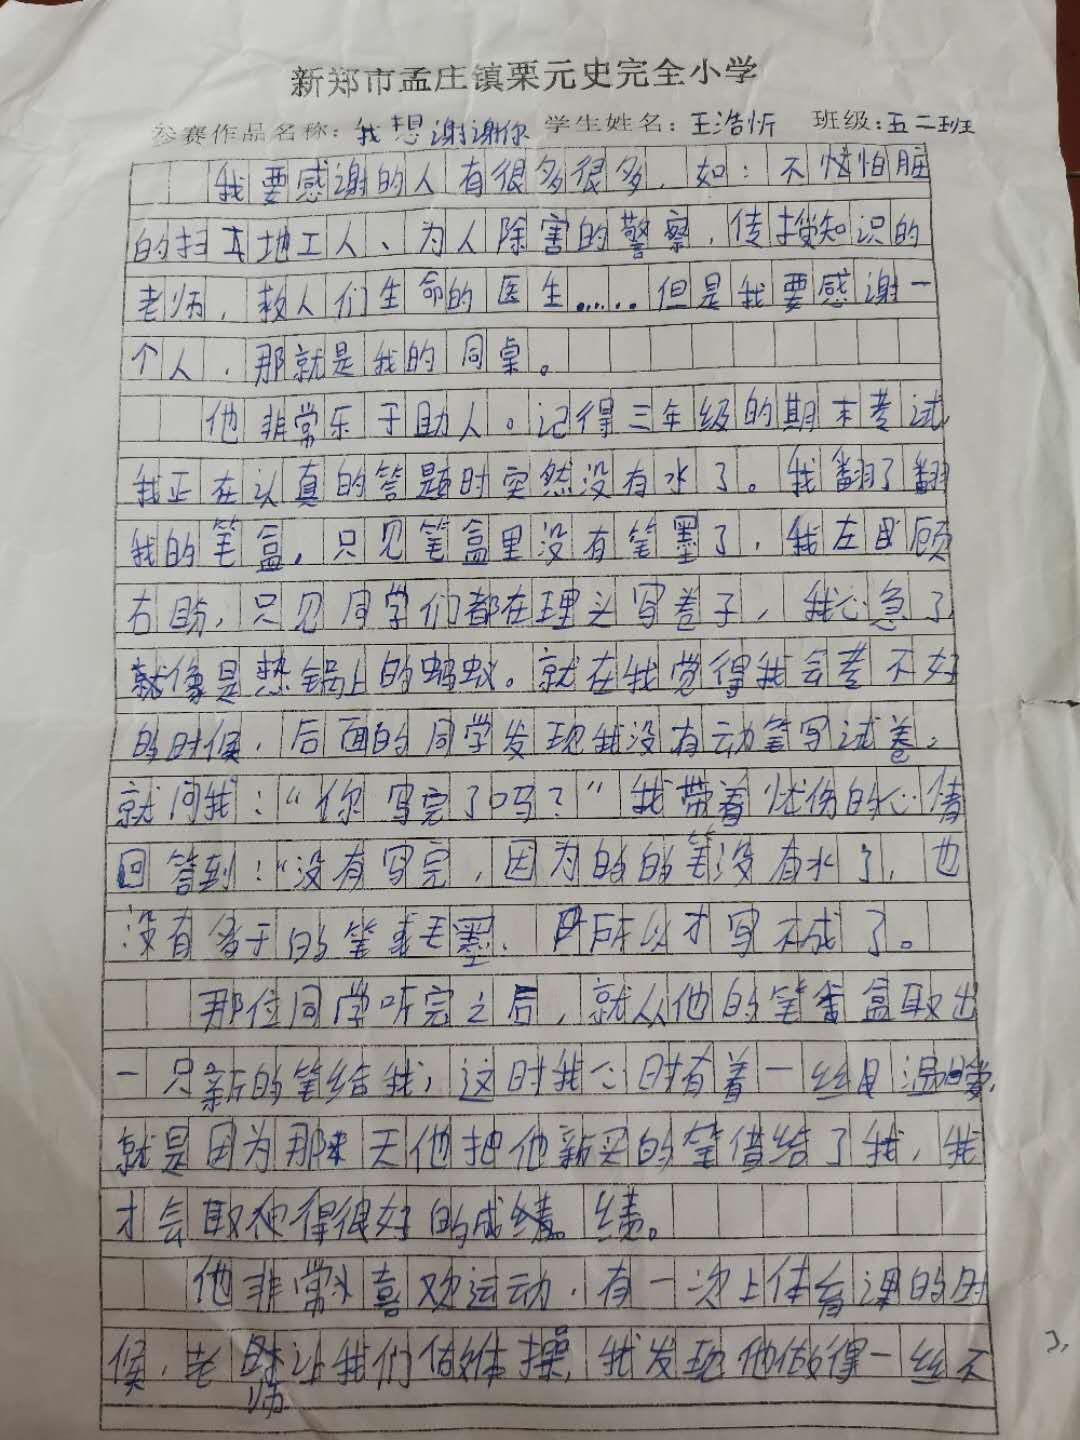 新郑市孟庄镇栗元史完全小学
参赛作品名称：我想谢谢你 学生姓名：王浩忻 班级：五二班
我要感谢的人有很多很多，如：不怕脏
的扫地工人、为人除害的警察，传授知识的
老师，救人们生命的医生……但是我要感谢一
个人，那就是我的同桌。
他非常乐于助人。记得三年级的期末考试
我正在认真的答题时突然没有水了。我翻了翻
我的笔盒，只见笔盒里没有笔墨了，我左顾
右盼，只见同学们都在埋头写卷子，我心急了
就像是热锅上的蚂蚁。就在我觉得我会考不好
的时候，后面的同学发现我没有动笔写试卷，
就问我：“你写完了吗？”我带着忧伤的心情
回答到：“没有写完，因为的的笔没有水了，也
没有多于的笔墨、所以才写不成了。
那位同学听完之后，就从他的笔盒取出
一只新的笔给我，这时我心时有着一丝温暖，
就是因为那天他把他新买的笔借给了我，我
才会取得很好的成绩。
他非常喜欢运动．有一次上体育课的时
候，老师让我们做体操，我发现他做得一丝不
3,